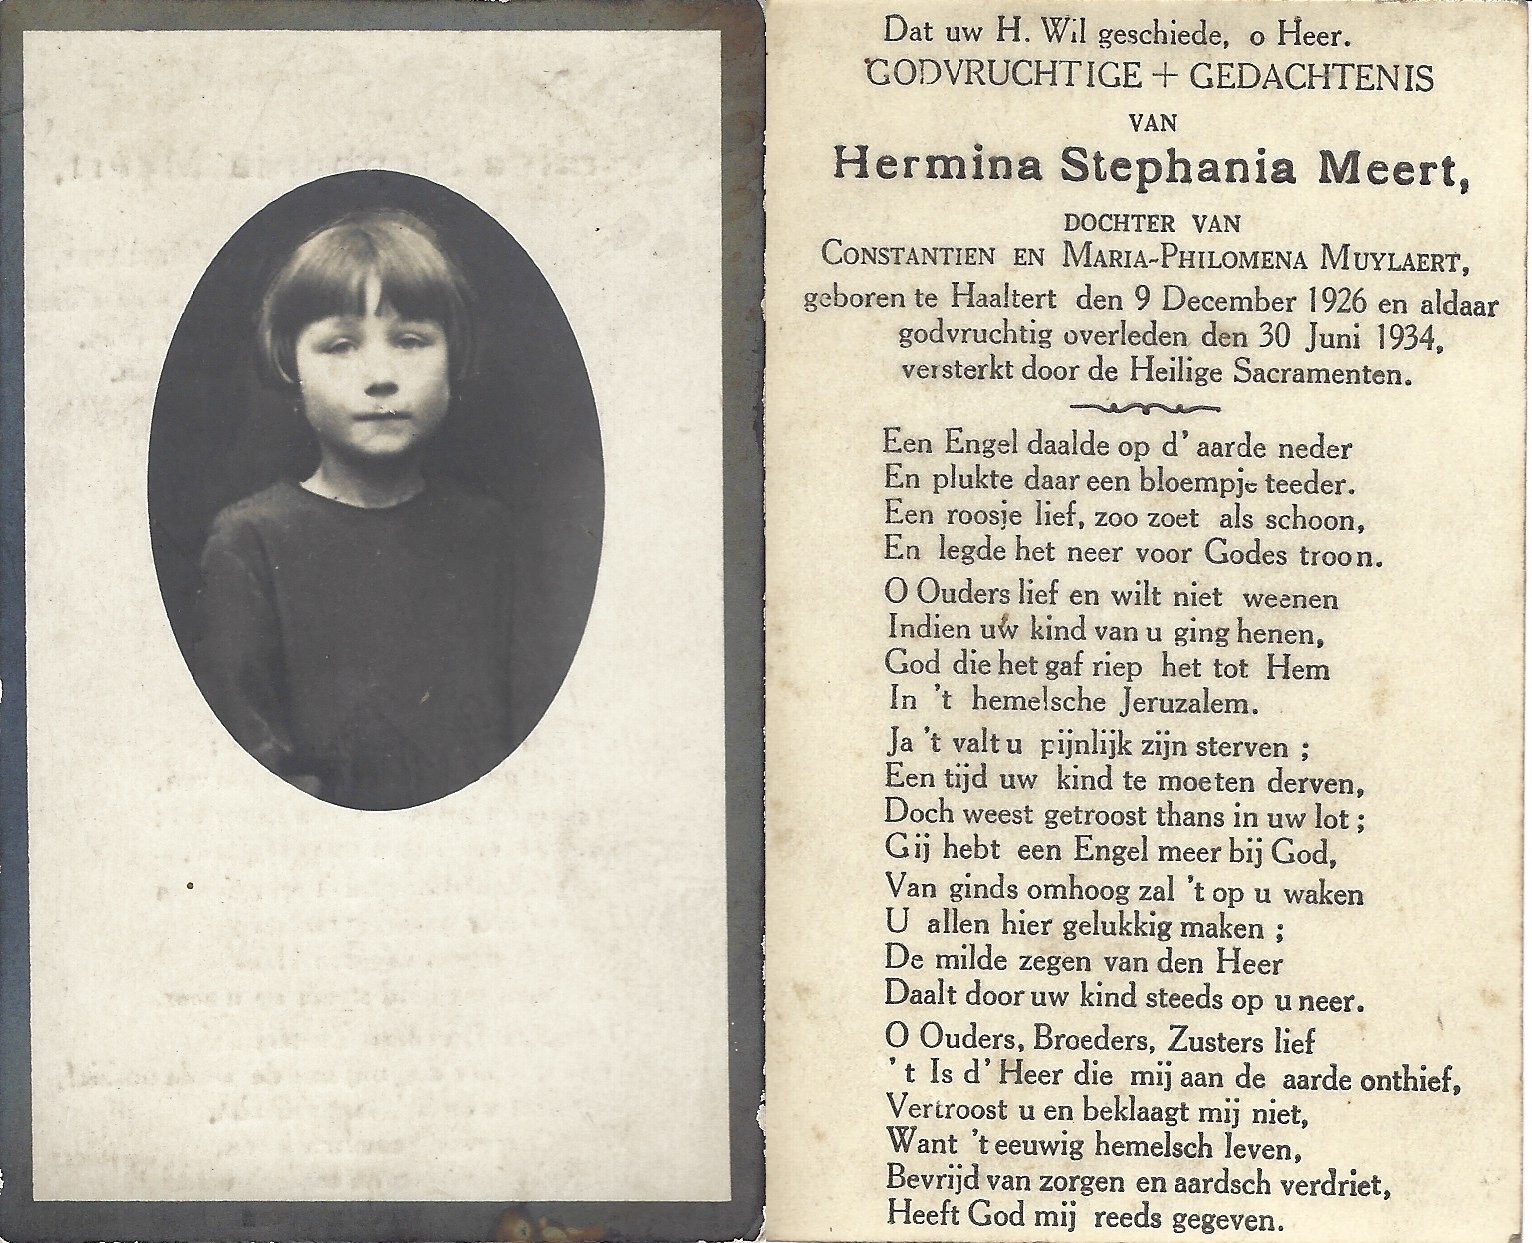 Dat uw H. Wil geschiede, o Heer.
GODVRUCHTIGE + GEDACHTENIS
VAN
Hermina Stephania Meert,
DOCHTER VAN
CONSTANTIEN EN MARIA-PHILOMENA MUYLAERT,
geboren te Haaltert den 9 December 1926 en aldaar
godvruchtig overleden den 30 Juni 1934,
versterkt door de Heilige Sacramenten.
Een Engel daalde op d' aarde neder
En plukte daar een bloempje teeder.
Een roosje lief, zoo zoet als schoon,
En legde het neer voor Godes troon.
O Ouders lief en wilt niet weenen
Indien uw kind van u ging henen,
God die het gaf riep het tot Hem
In 't hemelsche Jeruzalem.
Ja 't valt u pijnlijk zijn sterven ;
Een tijd uw kind te moeten derven,
Doch weest getroost thans in uw lot ;
Gij hebt een Engel meer bij God,
Van ginds omhoog zal 't op u waken
U allen hier gelukkig maken ;
De milde zegen van den Heer
Daalt door uw kind steeds op u neer.
O Ouders, Broeders, Zusters lief
't Is d' Heer die mij aan de aarde onthief,
Vertroost u en beklaagt mij niet,
Want 't eeuwig hemelsch leven,
Bevrijd van zorgen en aardsch verdriet,
Heeft God mij reeds gegeven.